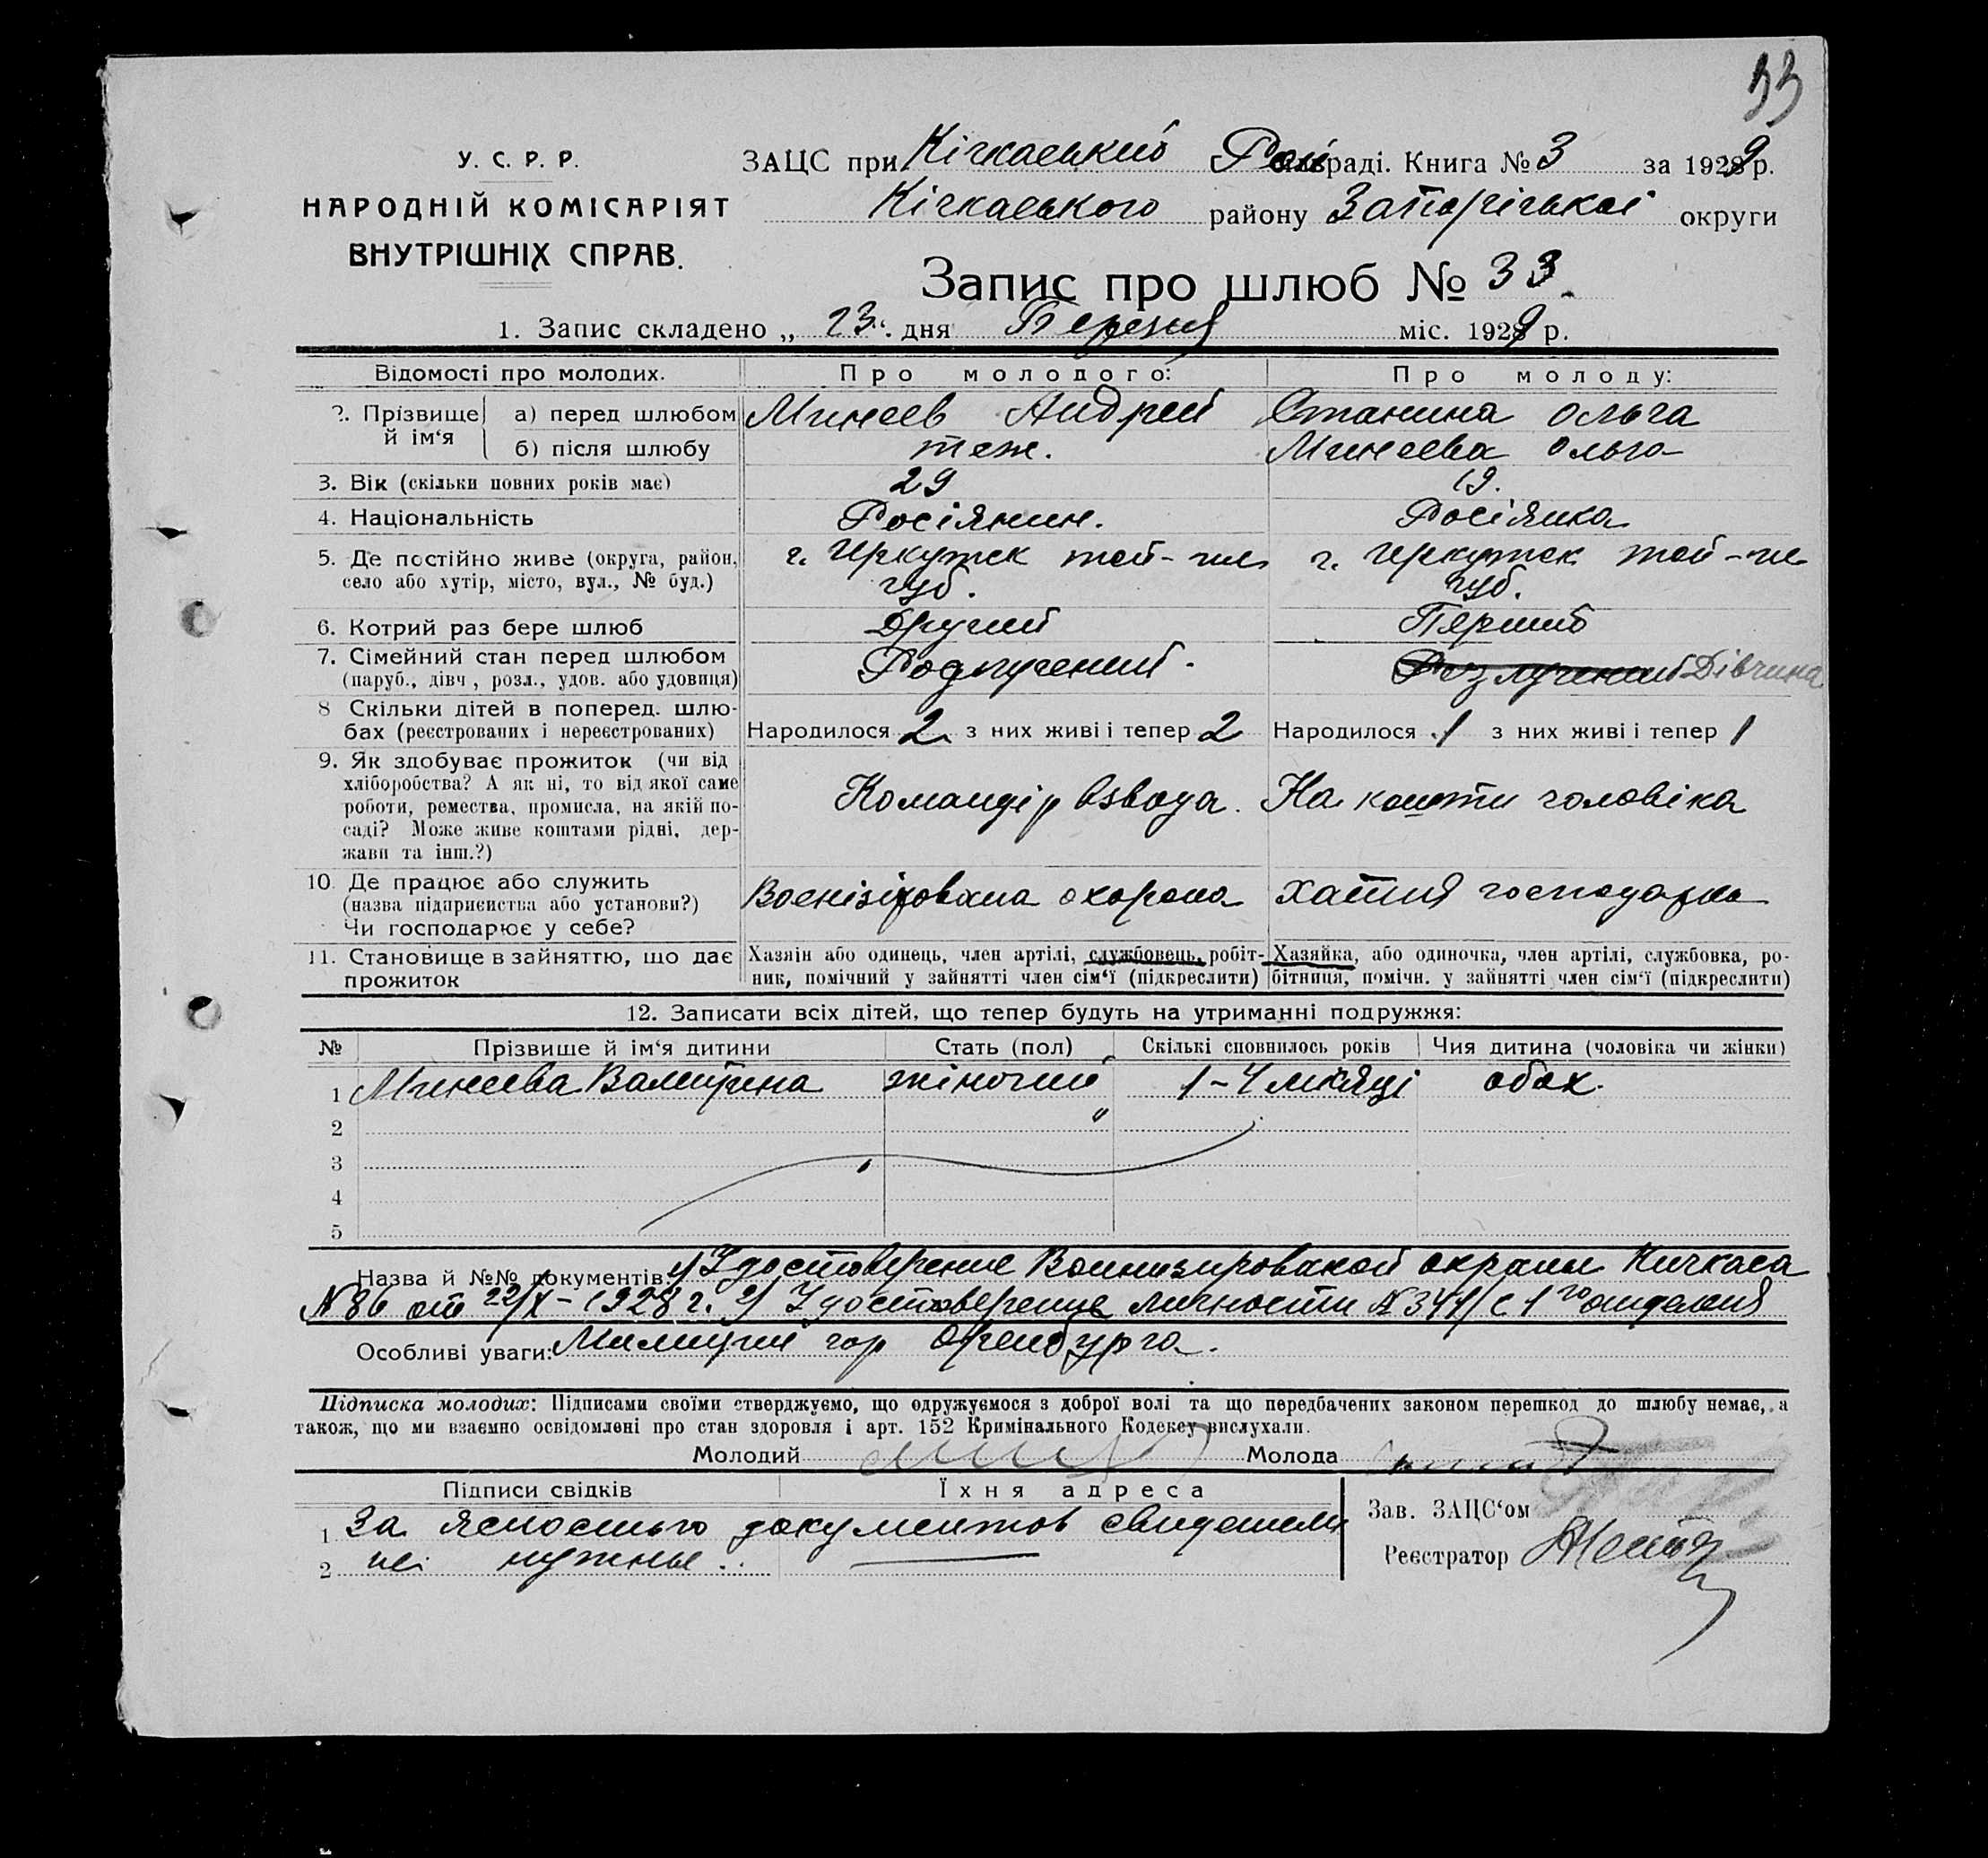 33
У. С. Р. Р.
НАРОДНІЙ КОМІСАРІЯТ
ВНУТРІШНІХ СПРАВ.
ЗАЦС при Кічкаський Рай раді. Книга № 3 за 1929 р.
Кічкаського району Запорізької округи
Запис про шлюб № 33.
1. Запис складено „ 23 “ дня Березня міс. 1929 р.
Відомості про молодих. Про молодого: Про молоду:
2. Прізвище й ім‘я а) перед шлюбом Минеев Андрей Станина Ольга
б) після шлюбу теж. Минеева Ольга
3. Вік (скільки повних років має) 29 19.
4. Національність Росіянин. Росіянка
5. Де постійно живе (округа, район, г. Иркутск той-же г. Иркутск той-же
село або хутір, місто, вул., № буд.) губ. губ.
6. Котрий раз бере шлюб Другий Перший
7. Сімейний стан перед шлюбом
(паруб., дівч., розл., удов. або удовиця) Розлучений. Розлучений Дівчина
8 Скільки дітей в поперед. шлю-
бах (реєстрованих і нереєстрованих) Народилося 2 з них живі і тепер 2 Народилося 1 з них живі і тепер 1
9. Як здобуває прожиток (чи від
хліборобства? А як ні, то від якої саме
роботи, ремества, промисла, на якій по- Командір взвода. На кошти чоловіка
саді? Може живе коштами рідні, дер-
жави та інш.?)
10. Де працює або служить
(назва підприємства або установи?) Воєнізірована охорона хатня господарка
Чи господарює у себе?
11. Становище в зайняттю, що дає Хазяїн або одинець, член артілі, службовець, робіт- Хазяйка, або одиночка, член артілі, службовка, ро-
прожиток ник, помічний у зайнятті член сім‘ї (підкреслити) бітниця, помічн. у зайнятті член сім‘ї (підкреслити)
12. Записати всіх дітей, що тепер будуть на утриманні подружжя:
№ Прізвище й ім‘я дитини Стать (пол) Скількі сповнилось років Чия дитина (чоловіка чи жінки)
1 Минеева Валентина жіночий 1-4 місяці обох.
2
3
4
5
Назва й №№ документів: 1) Удостоверение Военизированой охраны Кичкаса
№ 86 от 22/X-1928 г. 2) Удостоверение личности № 344/с 1го отделения
Особливі уваги: Милиции гор Оренбурга.
Підписка молодих: Підписами своїми стверджуємо, що одружуємося з доброї волі та що передбачених законом перешкод до шлюбу немає, а
також, що ми взаємно освідомлені про стан здоровля і арт. 152 Кримінального Кодексу вислухали.
Молодий Молода
Підписи свідків Їхня адреса
1 За ясностью документов свидетели
2 не нужны.
Зав. ЗАЦС‘ом
Реєстратор